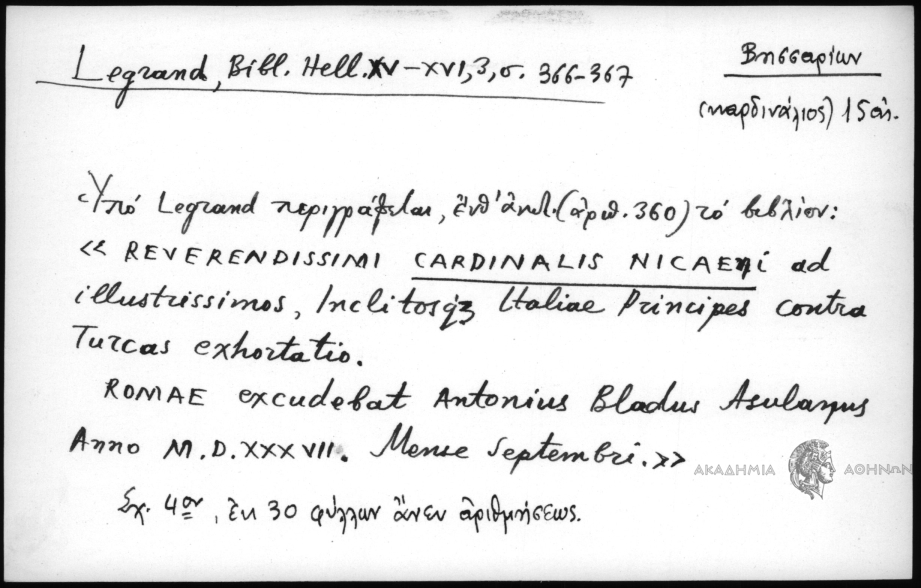 Legrand, Bibl. Hell. XV-XVI, 3, σ. 366-367
Βησσαρίων
(καρδινάλιος) 15 αἰ.
Ὑπό Legrand περιγράφεται, ἔνθ' ἀνωτ. (ἀριθ. 360) τό βιβλίον:
« REVERENDISSIMI CARDINALIS NICAENI ad
illustrissimos, Inclitosq3 Italiae Principes contra
Turcas exhortatio.
ROMAE excudebat Antonius Bladus Asulanus
Anno M.D.XXXVII. Mense Septembri.»
ΑΚΑΔΗΜΙΑ ΑΘΗΝΩΝ
Σχ. 4ον, ἐκ 30 φύλλων ἄνευ ἀριθμήσεως.